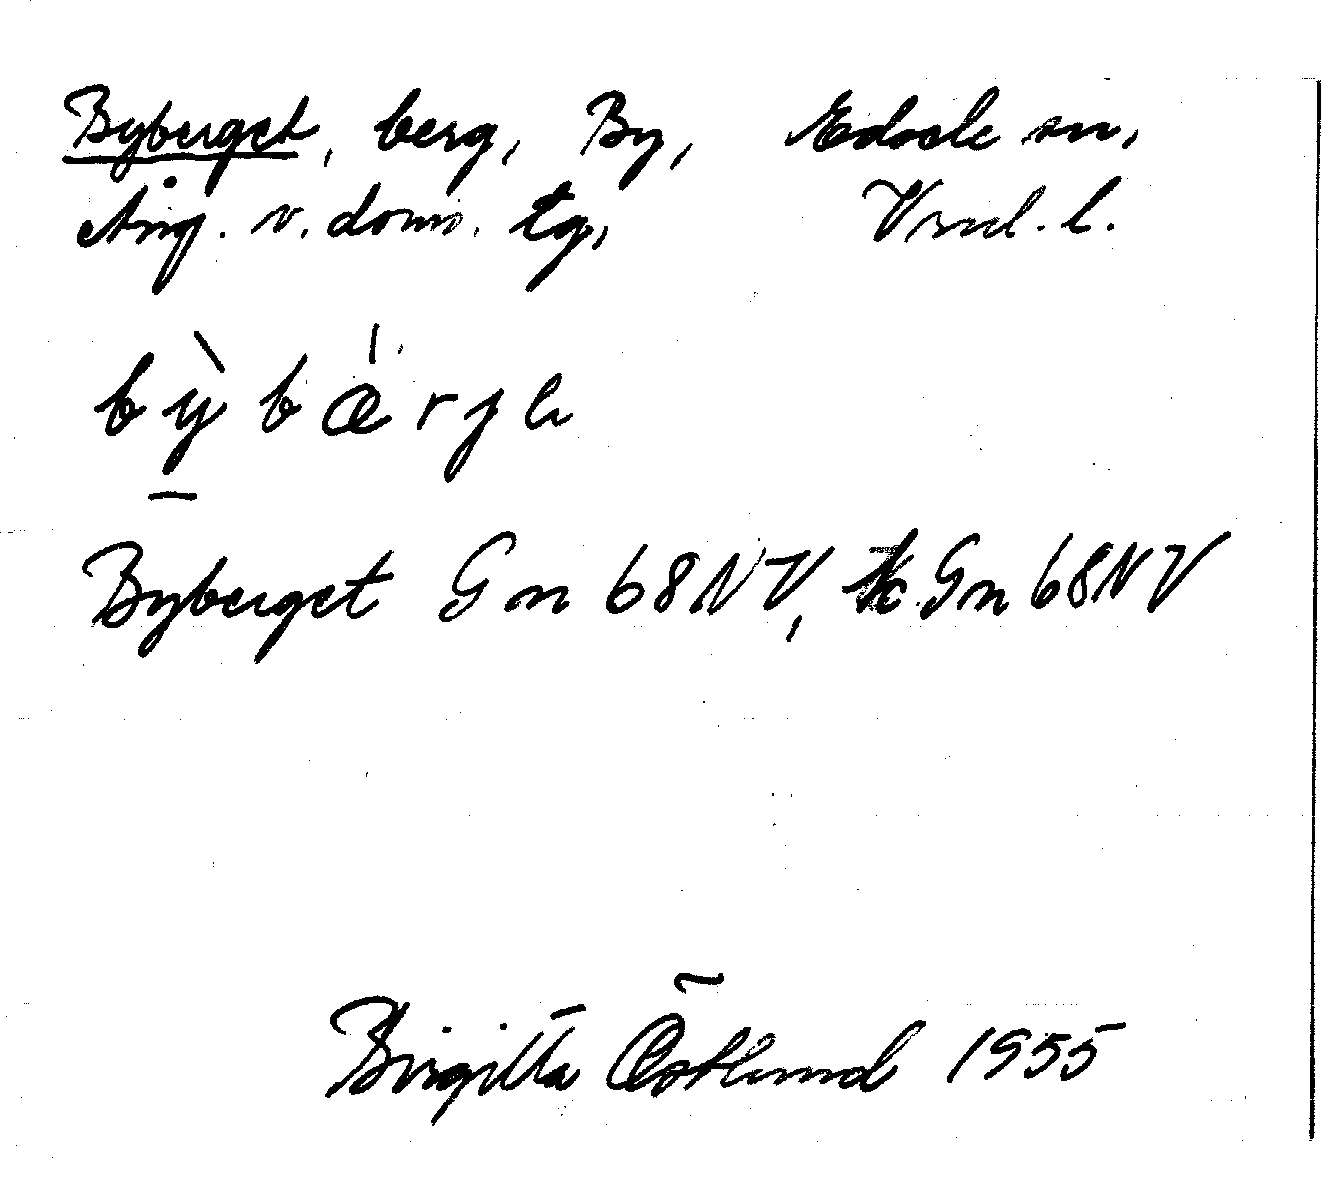 Byberget, berg, By, Edsele sn,
Ång. v. doms. tg, Vnl. l.
bỳbæ̍rjɛ
Byberget Gm 68NV, k Gm 68NV
Birgitta Östlund 1955